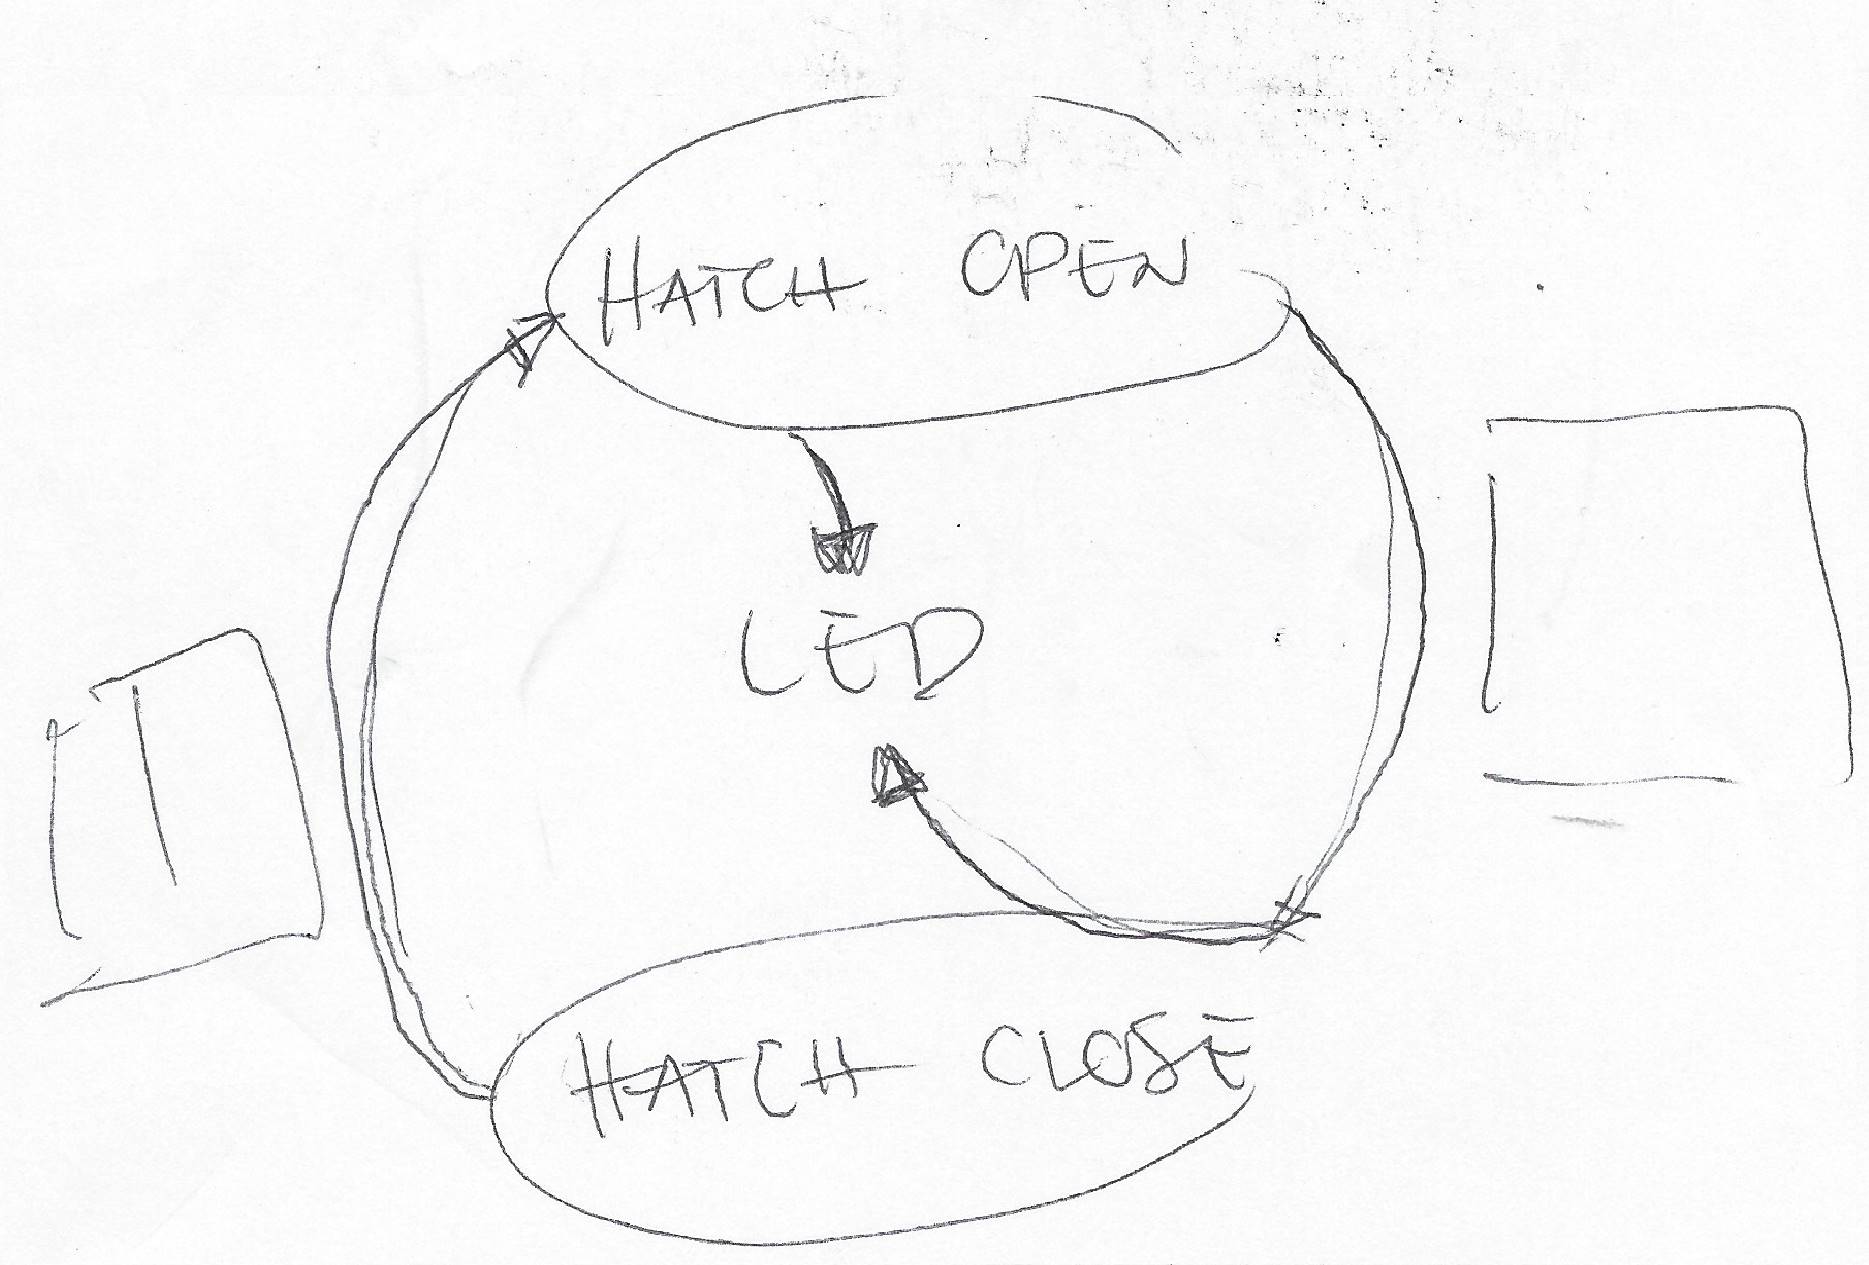 HATCH OPEN
LED
HATCH CLOSE